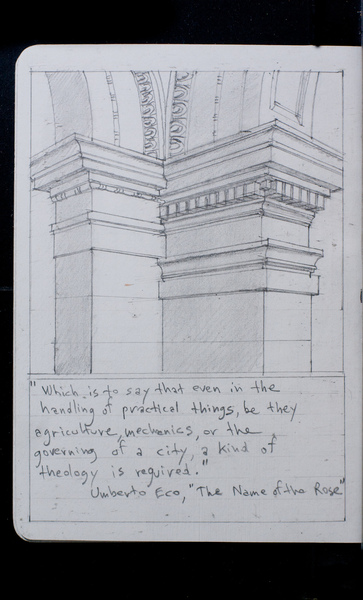 "Which is to say that even in the
handling of practical things, be they
agriculture, mechanics, or the
governing of a city, a kind of
theology is required."
Umberto Eco, "The Name of the Rose"